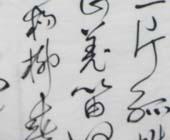 一片孤
羌笛
杨柳春